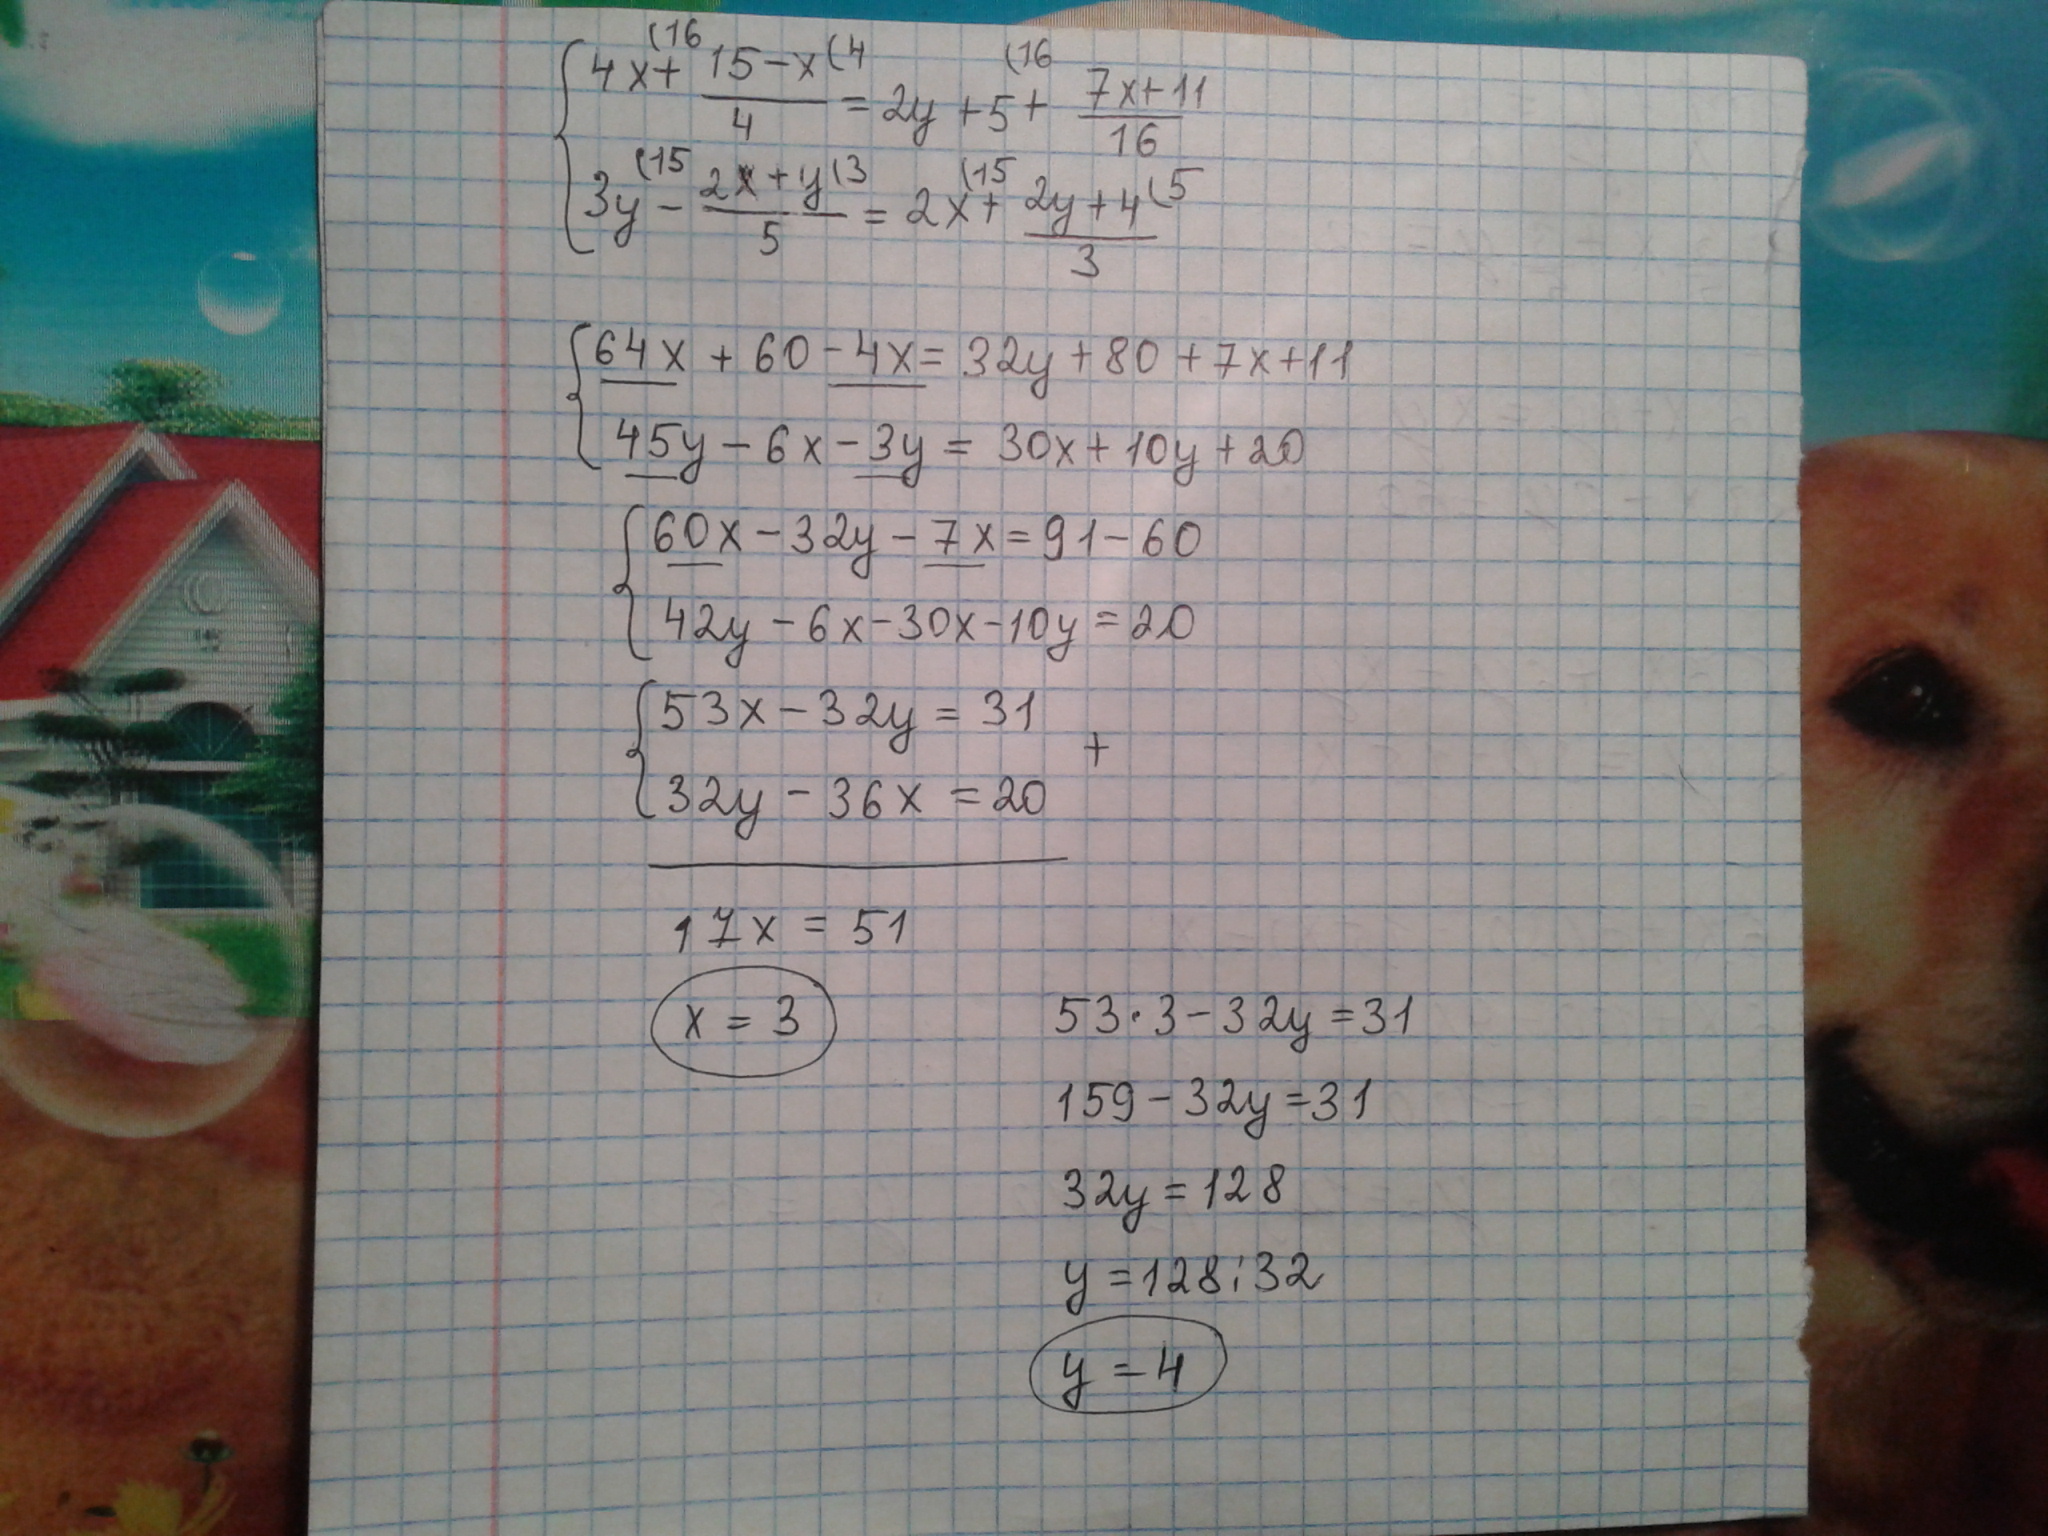 { 4x+ (16 15-x (4 / 4 = 2y +5+ (16 7x+11 / 16
3y (15 - 2x+y (3 / 5 = 2x (15 + 2y+4 (5 / 3
{ 64x + 60 -4x = 32y + 80 + 7x + 11
45y - 6x - 3y = 30x + 10y + 20
{ 60x - 32y - 7x = 91 - 60
42y - 6x - 30x - 10y = 20
{ 53x - 32y = 31
+
32y - 36x = 20
17x = 51
x = 3
53·3 - 32y = 31
159 - 32y = 31
32y = 128
y = 128:32
y = 4